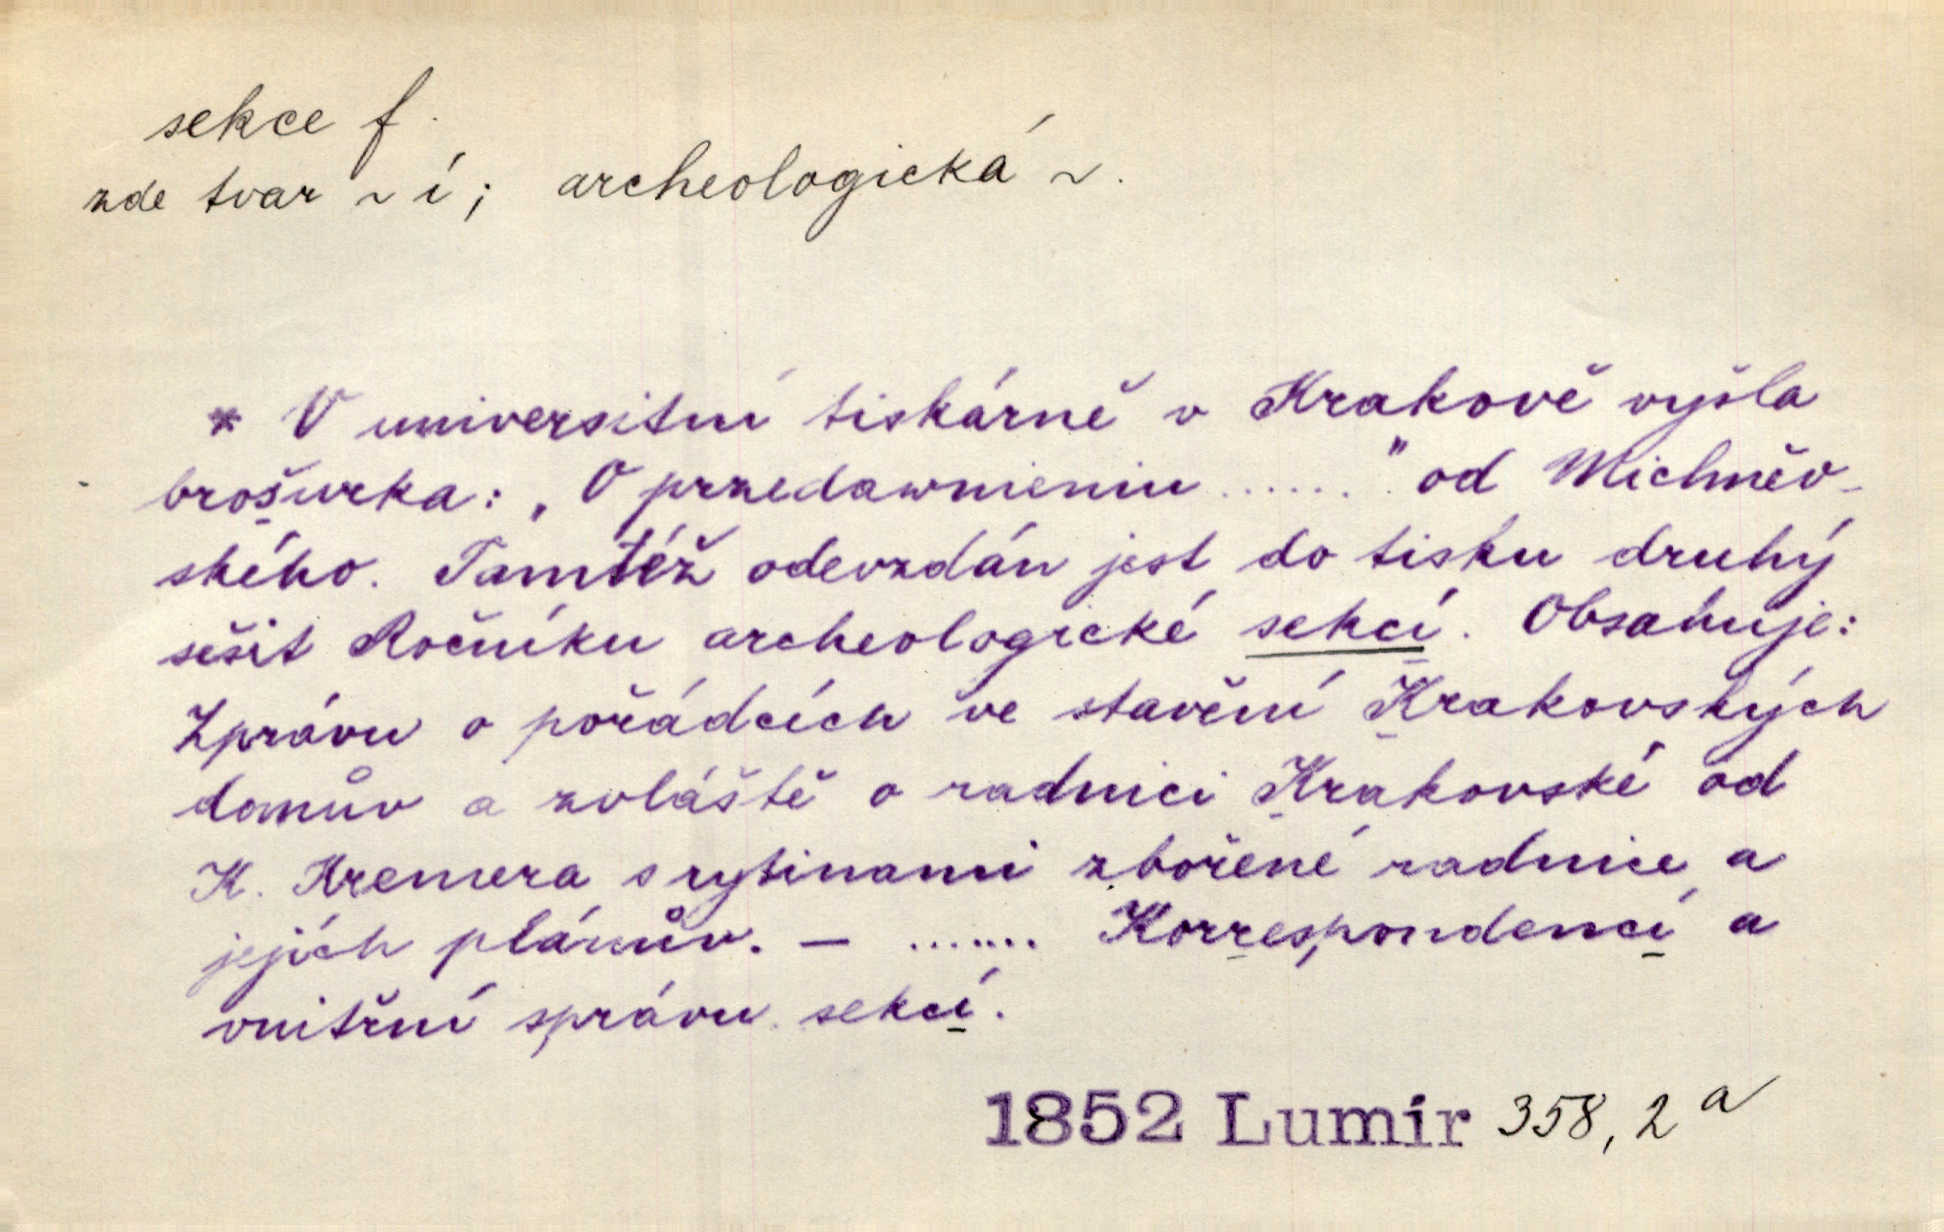 sekce f.
zde tvar ~ í; archeologická ~.
* V universitní tiskárně v Krakově vyšla
brošurka: „O przedawnieniu ......" od Michněv-
ského. Tamtéž odevzdán jest do tisku druhý
sešit Ročníku archeologické sekcí. Obsahuje:
Zprávu o pořádcích ve stavění Krakovských
domův a zvláště o radnici Krakovské od
K. Kremera s rytinami zbořené radnice a
jejích plánův. — ....... Korrespondencí a
vnitřní správu sekcí.
1852 Lumír 358, 2 a